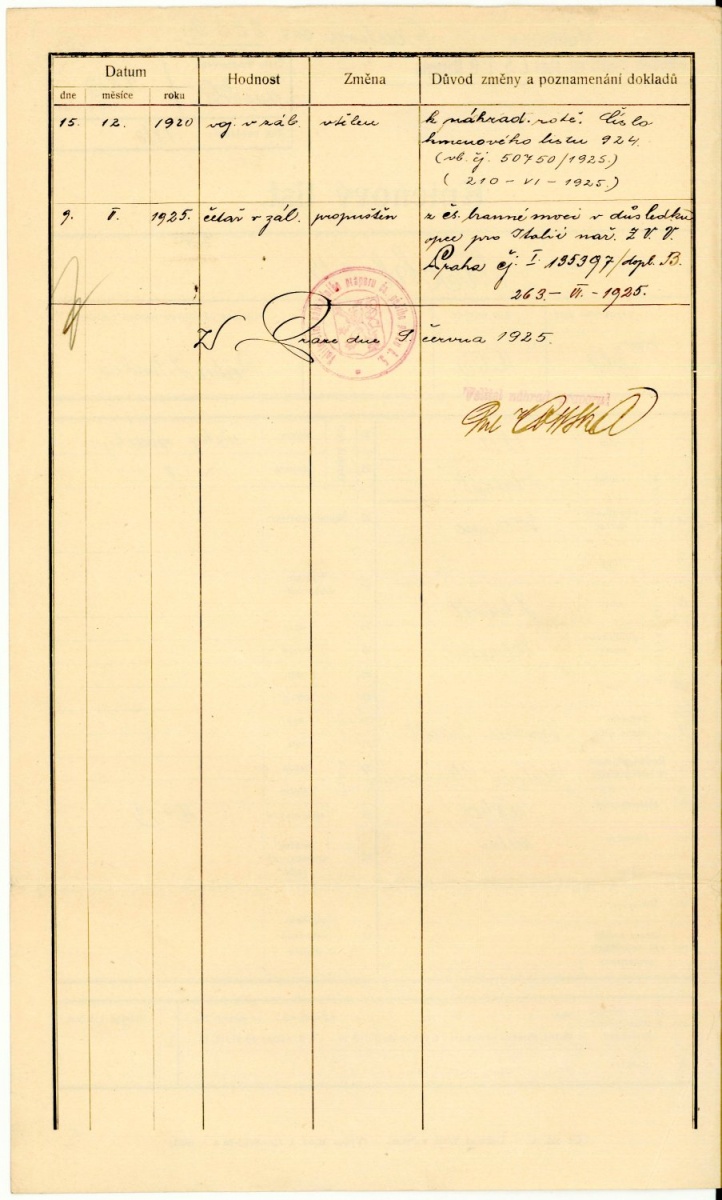 Datum Hodnost Změna Důvod změny a poznamenání dokladů
dne měsíce roku
15. 12. 1920 voj. v zál. vtělen k náhrad. rotě. Číslo
kmenového listu 924.
(vb. čj. 50750/1925.)
(210 – VI – 1925.)
9. 1925. četař v zál. propuštěn z čs. branné moci v důsledku
opce pro Italii nař. Z. V. V.
Praha čj. I. 195397/dopl. B.
263. – VI. – 1925.
V Praze dne 9. června 1925.